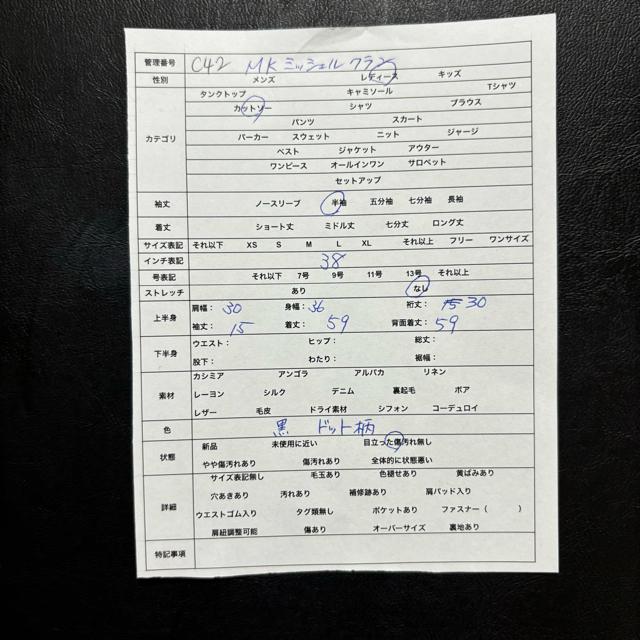 管理番号 C42 MK ミッシェル クラン
性別 メンズ レディース キッズ
カテゴリ
タンクトップ キャミソール Tシャツ
カットソー シャツ ブラウス
パンツ スカート
パーカー スウェット ニット ジャージ
ベスト ジャケット アウター
ワンピース オールインワン サロペット
セットアップ
袖丈 ノースリーブ 半袖 五分袖 七分袖 長袖
着丈 ショート丈 ミドル丈 七分丈 ロング丈
サイズ表記 それ以下 XS S M L XL それ以上 フリー ワンサイズ
インチ表記 38
号表記 それ以下 7号 9号 11号 13号 それ以上
ストレッチ あり なし
上半身
肩幅: 30 身幅: 36 裄丈: 30
袖丈: 15 着丈: 59 背面着丈: 59
下半身
ウエスト: ヒップ: 総丈:
股下: わたり: 裾幅:
素材
カシミア アンゴラ アルパカ リネン
レーヨン シルク デニム 裏起毛 ボア
レザー 毛皮 ドライ素材 シフォン コーデュロイ
色 黒 ドット柄
状態
新品 未使用に近い 目立った傷汚れ無し
やや傷汚れあり 傷汚れあり 全体的に状態悪い
詳細
サイズ表記無し 毛玉あり 色褪せあり 黄ばみあり
穴あきあり 汚れあり 補修跡あり 肩パッド入り
ウエストゴム入り タグ類無し ポケットあり ファスナー( )
肩紐調整可能 傷あり オーバーサイズ 裏地あり
特記事項